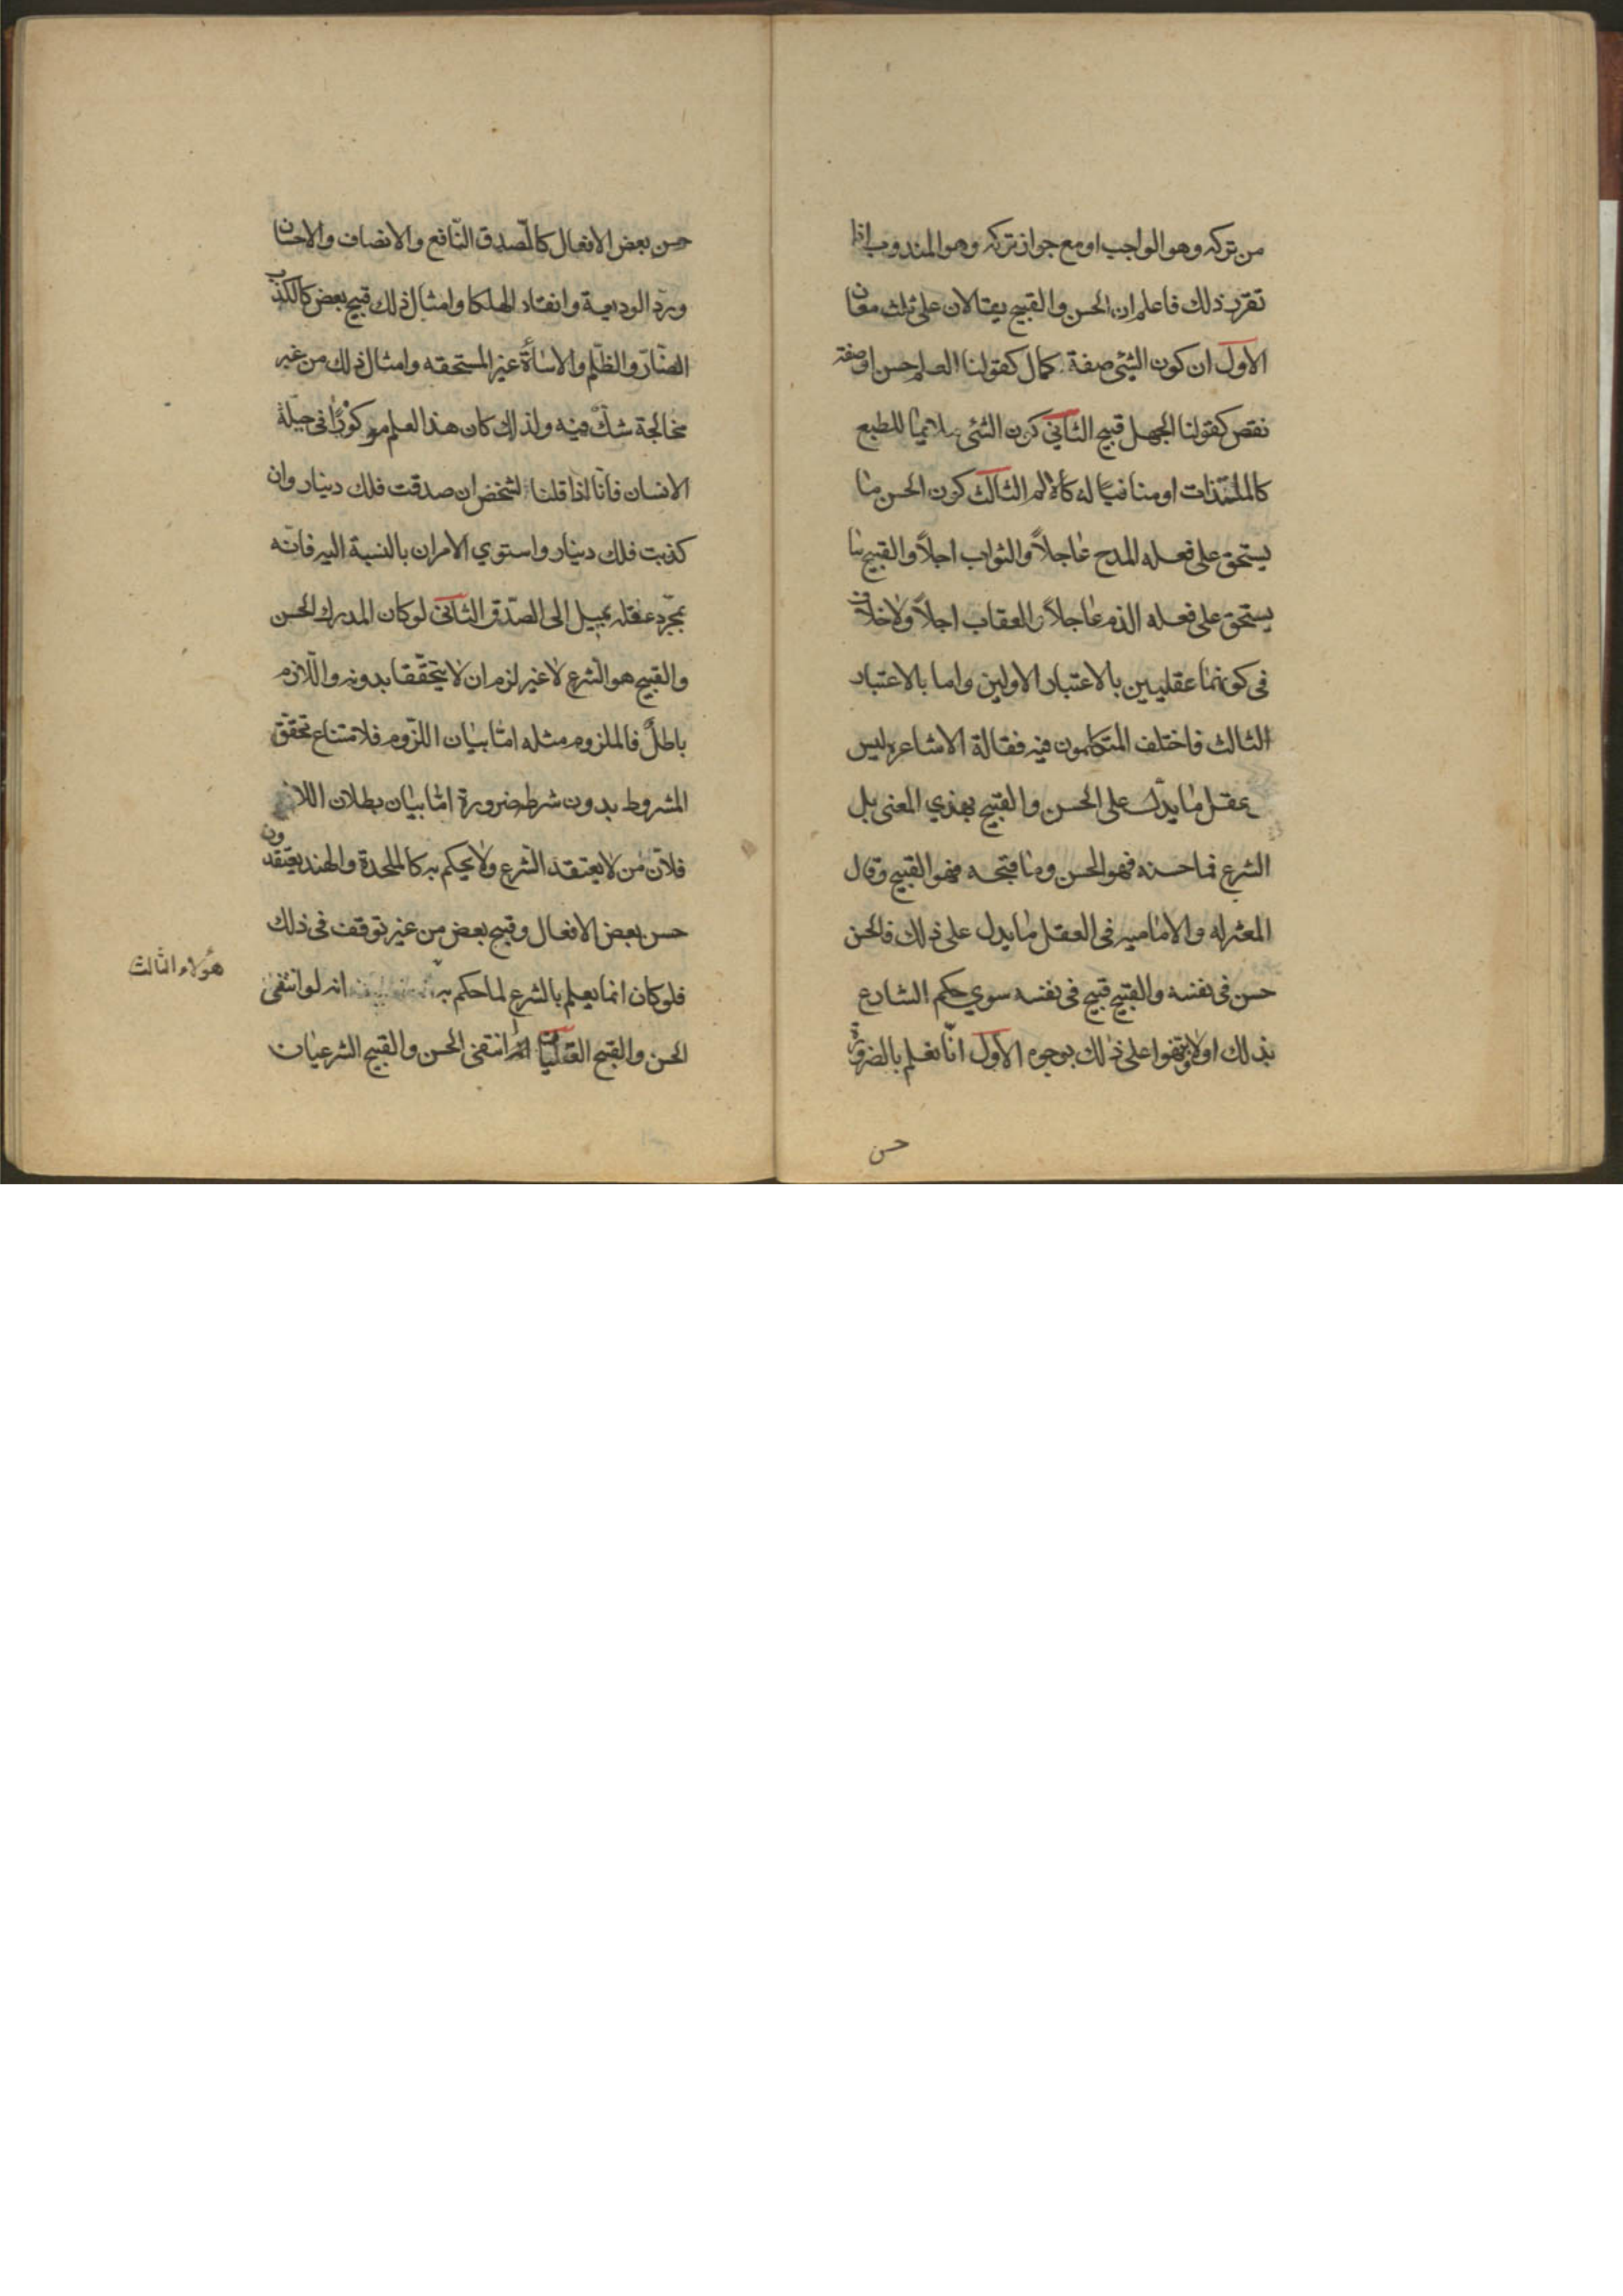 من تركه وهو الواجب او مع جواز تركه وهو المندوب اذا
تقرر ذلك فاعلم ان الحسن والقبيح يقالان على ثلث معان
الاول ان كون الشئ صفة كمال كقولنا العلم حسن او صفة
نقص كقولنا الجهل قبيح الثاني كون الشئ ملايما للطبع
كالملتذات او منافيا له كالالم الثالث كون الحسن ما
يستحق على فعله المدح عاجلاً والثواب اجلاً والقبيح ما
يستحق على فعله الذم عاجلاً والعقاب اجلاً ولا خلاف
فى كونهما عقليين بالاعتبار الاولين واما بالاعتبار
الثالث فاختلف المتكلمون فيه فقالة الاشاعره ليس
بمقل ما يدل على الحسن والقبيح بهذي المعنى بل
الشرع فما حسنه فهو الحسن وما قبحه فهو القبيح وقال
المعتزله والاماميه فى العقل ما يدل على ذلك فالحسن
حسن فى نفسه والقبيح قبيح فى نفسه سوي حكم الشارع
بذلك اولا ونبهوا على ذلك بوجوه الاول انّا نعلم بالضرورة
حسن
حسن بعض الافعال كالصدق النافع والانصاف والاحسان
وردّ الوديعة وانقاد الهلكا وامثال ذلك قبيح بعض كالكذب
الضارّ والظلم والاسأة غير المستحقه وامثال ذلك من غير
مخالجة شك فيه ولذلك كان هذا العلم مركوزًا فى جبلّة
الانسان فانّا اذا قلنا لشخص ان صدقت فلك دينار وان
كذبت فلك دينار واستوي الامران بالنسبة اليه فانّه
بمجرد عقله يميل الى الصدق الثانى لو كان المدرك الحسن
والقبيح هو الشرع لا غير لزم ان لا يتحققا بدونه واللازم
باطلٌ فالملزوم مثله امّا بيان اللزوم فلامتناع تحقق
المشروط بدون شرط ضرورة امّا بيان بطلان اللازم
فلانّ من لا يعتقد الشرع ولا يحكم به كالملحدة والهند يعتقدون
حسن بعض الافعال وقبيح بعض من غير توقف فى ذلك
فلو كان انما يعلم بالشرع لما حكم به انه لو انتفى
هؤلاء الثالث
الحسن والقبح العقليان انتفى الحسن والقبيح الشرعيان